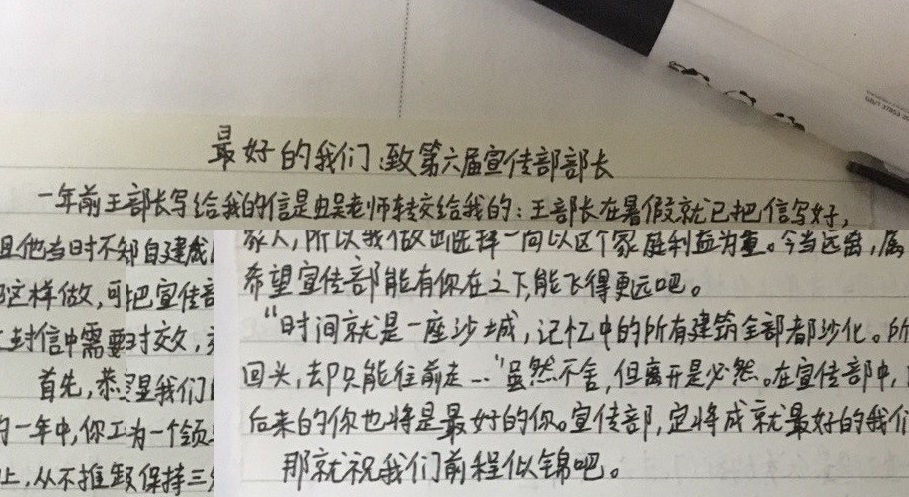 最好的我们:致第六届宣传部部长
一年前王部长写给我的信是由吴老师转交给我的:王部长在暑假就已把信写好,
且他当时不知自建成
这样做,可把宣传部
封信中需要对交,
首先,恭 我们
的一年中,你工为一个领
上,从不推 保持三
家人,所以我做出选择一向以这个家庭利益为重。今当远离,
希望宣传部能有你在之下,能飞得更远吧。
“时间就是一座沙城,记忆中的所有建筑全部都沙化。所
回头,却只能往前走…”虽然不舍,但离开是必然。在宣传部中,
后来的你也将是最好的你。宣传部,定将成就最好的我们
那就祝我们前程似锦吧。